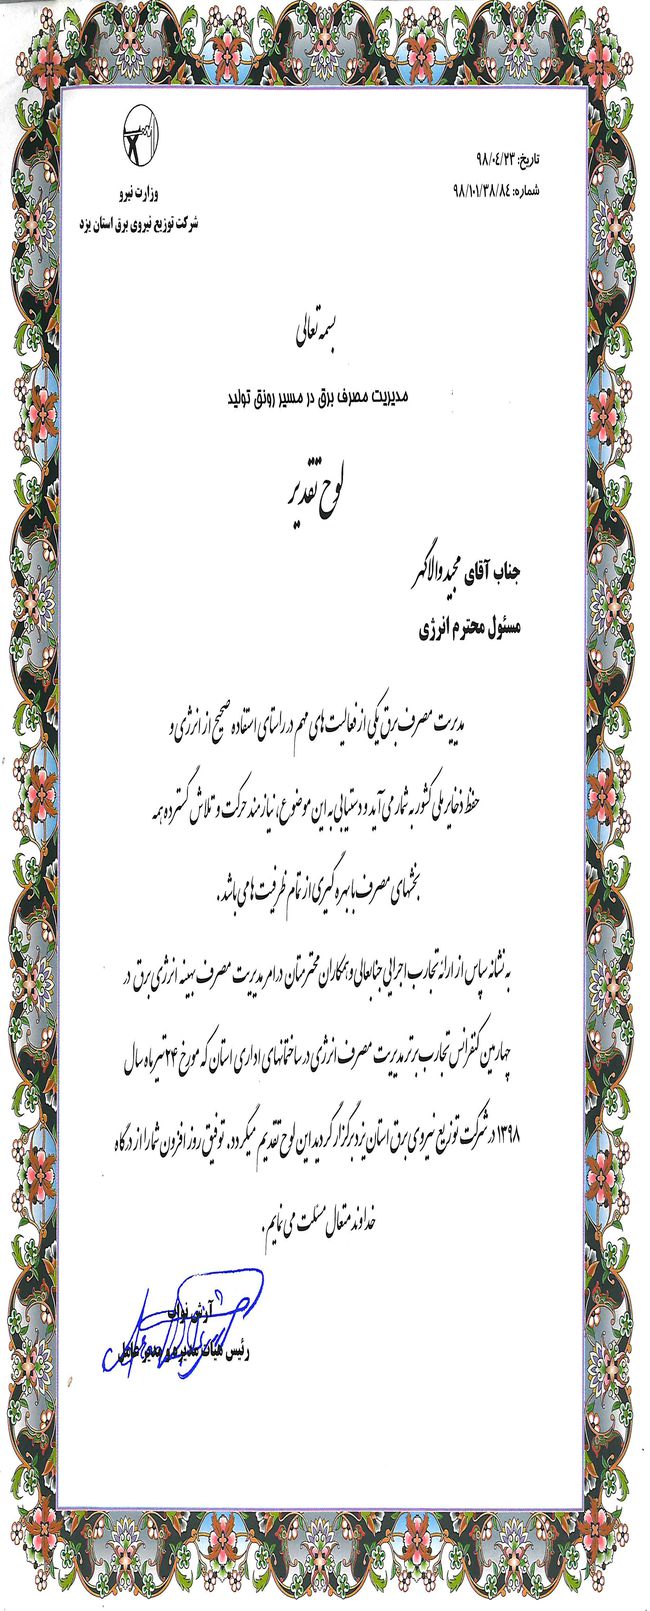 تاریخ: ۹۸/۰۴/۲۳
شماره: ۹۸/۱۰۱/۳۸/۸۴
وزارت نیرو
شرکت توزیع نیروی برق استان یزد
بسمه تعالی
مدیریت مصرف برق در مسیر رونق تولید
لوح تقدیر
جناب آقای مجید والاگهر
مسئول محترم انرژی
مدیریت مصرف برق یکی از فعالیت های مهم در راستای استفاده صحیح از انرژی و
حفظ ذخایر ملی کشور به شمار می آید و دستیابی به این موضوع، نیازمند حرکت و تلاش گسترده همه
بخشهای مصرف با بهره گیری از تمام ظرفیت ها می باشد.
به نشانه سپاس از ارائه تجارب اجرایی جنابعالی و همکاران محترمتان در امر مدیریت مصرف بهینه انرژی برق در
چهارمین کنفرانس تجارب برتر مدیریت مصرف انرژی در ساختمانهای اداری استان که مورخ ۲۴ تیر ماه سال
۱۳۹۸ در شرکت توزیع نیروی برق استان یزد برگزار گردید این لوح تقدیم میگردد. توفیق روز افزون شما را از درگاه
خداوند متعال مسئلت می نمایم.
آرش نواب
رئیس هیات مدیره و مدیر عامل